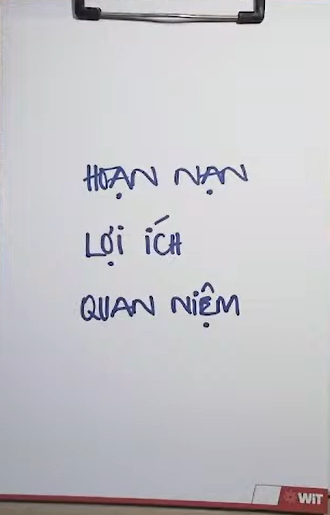 HOẠN NẠN
LỢI ÍCH
QUAN NIỆM
WIT